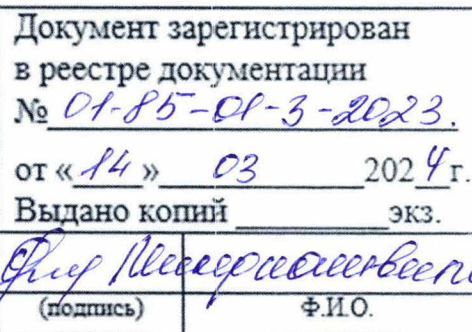 Документ зарегистрирован
в реестре документации
№ 01-85-01-3-2023.
от «14» 03 2024г.
Выдано копий ________ экз.
(подпись) Ф.И.О.